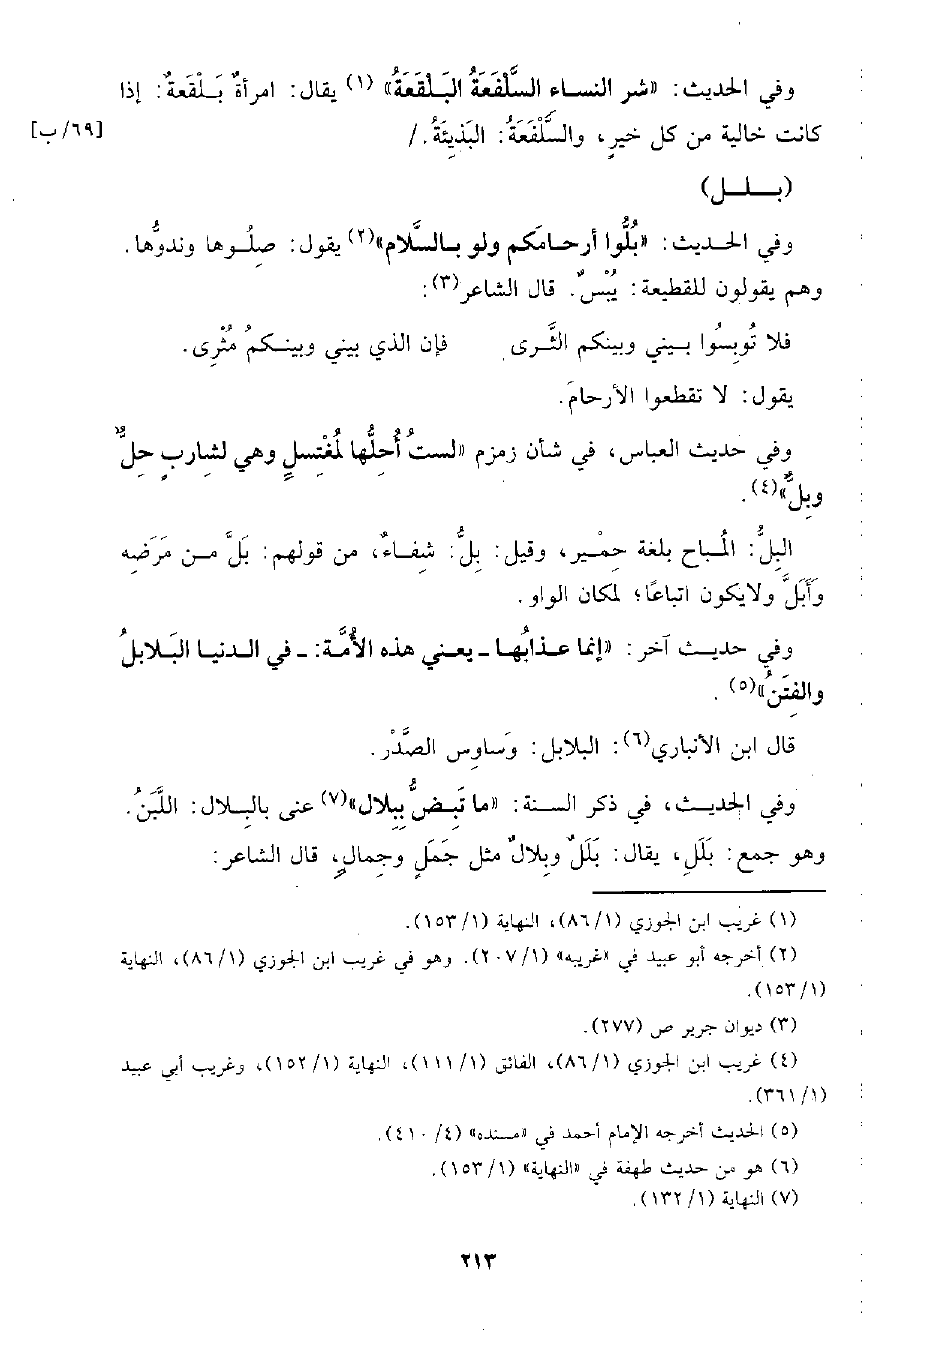 وفي الحديث: «شر النساء السَّلْفَعَةُ البَلْقَعَةُ» (١) يقال: امرأةٌ بَلْقَعةٌ: إذا
كانت خالية من كل خيرٍ، والسَّلْفَعَةُ: البَذِيئَةُ. /
[٦٩/ب]
(بـلـل)
وفي الحديث: «بُلُّوا أرحامَكم ولو بالسَّلام»(٢) يقول: صِلُوها وندوُّها.
وهم يقولون للقطيعة: يُبْسٌ. قال الشاعر(٣):
فلا تُوبِسُوا بيني وبينكم الثَّرى فإن الذي بيني وبينكمُ مُثْرِى.
يقول: لا تقطعوا الأرحامَ.
وفي حديث العباس، في شأن زمزم «لستُ أُحِلُّها لمُغْتسلٍ وهي لشاربٍ حِلٌّ
وبِلٌّ»(٤).
البِلُّ: المُباح بلغة حِمْير، وقيل: بِلٌّ: شِفاءٌ، من قولهم: بَلَّ من مَرَضِه
وأَبَلَّ ولايكون اتباعًا؛ لمكان الواو.
وفي حديث آخر: «إنما عذابُها ـ يعني هذه الأُمَّة: ـ في الدنيا البَلابلُ
والفِتَنُ»(٥).
قال ابن الأنباري(٦): البلابل: وَساوِس الصَّدْر.
وفي الحديث، في ذكر السنة: «ما تَبِضُّ بِبِلال»(٧) عنى بالبِلال: اللَّبَنُ.
وهو جمع: بَلَلٍ، يقال: بَلَلٌ وبِلالٌ مثل جَمَلٍ وجِمالٍ، قال الشاعر:
(١) غريب ابن الجوزي (٨٦/١)، النهاية (١٥٣/١).
(٢) أخرجه أبو عبيد في «غريبه» (٢٠٧/١). وهو في غريب ابن الجوزي (٨٦/١)، النهاية
(١٥٣/١).
(٣) ديوان جرير ص (٢٧٧).
(٤) غريب ابن الجوزي (٨٦/١)، الفائق (١١١/١)، النهاية (١٥٢/١)، وغريب أبي عبيد
(٣٦١/١).
(٥) الحديث أخرجه الإمام أحمد في «مسنده» (٤١٠/٤).
(٦) هو من حديث طهفة في «النهاية» (١٥٣/١).
(٧) النهاية (١٣٢/١).
٢١٣